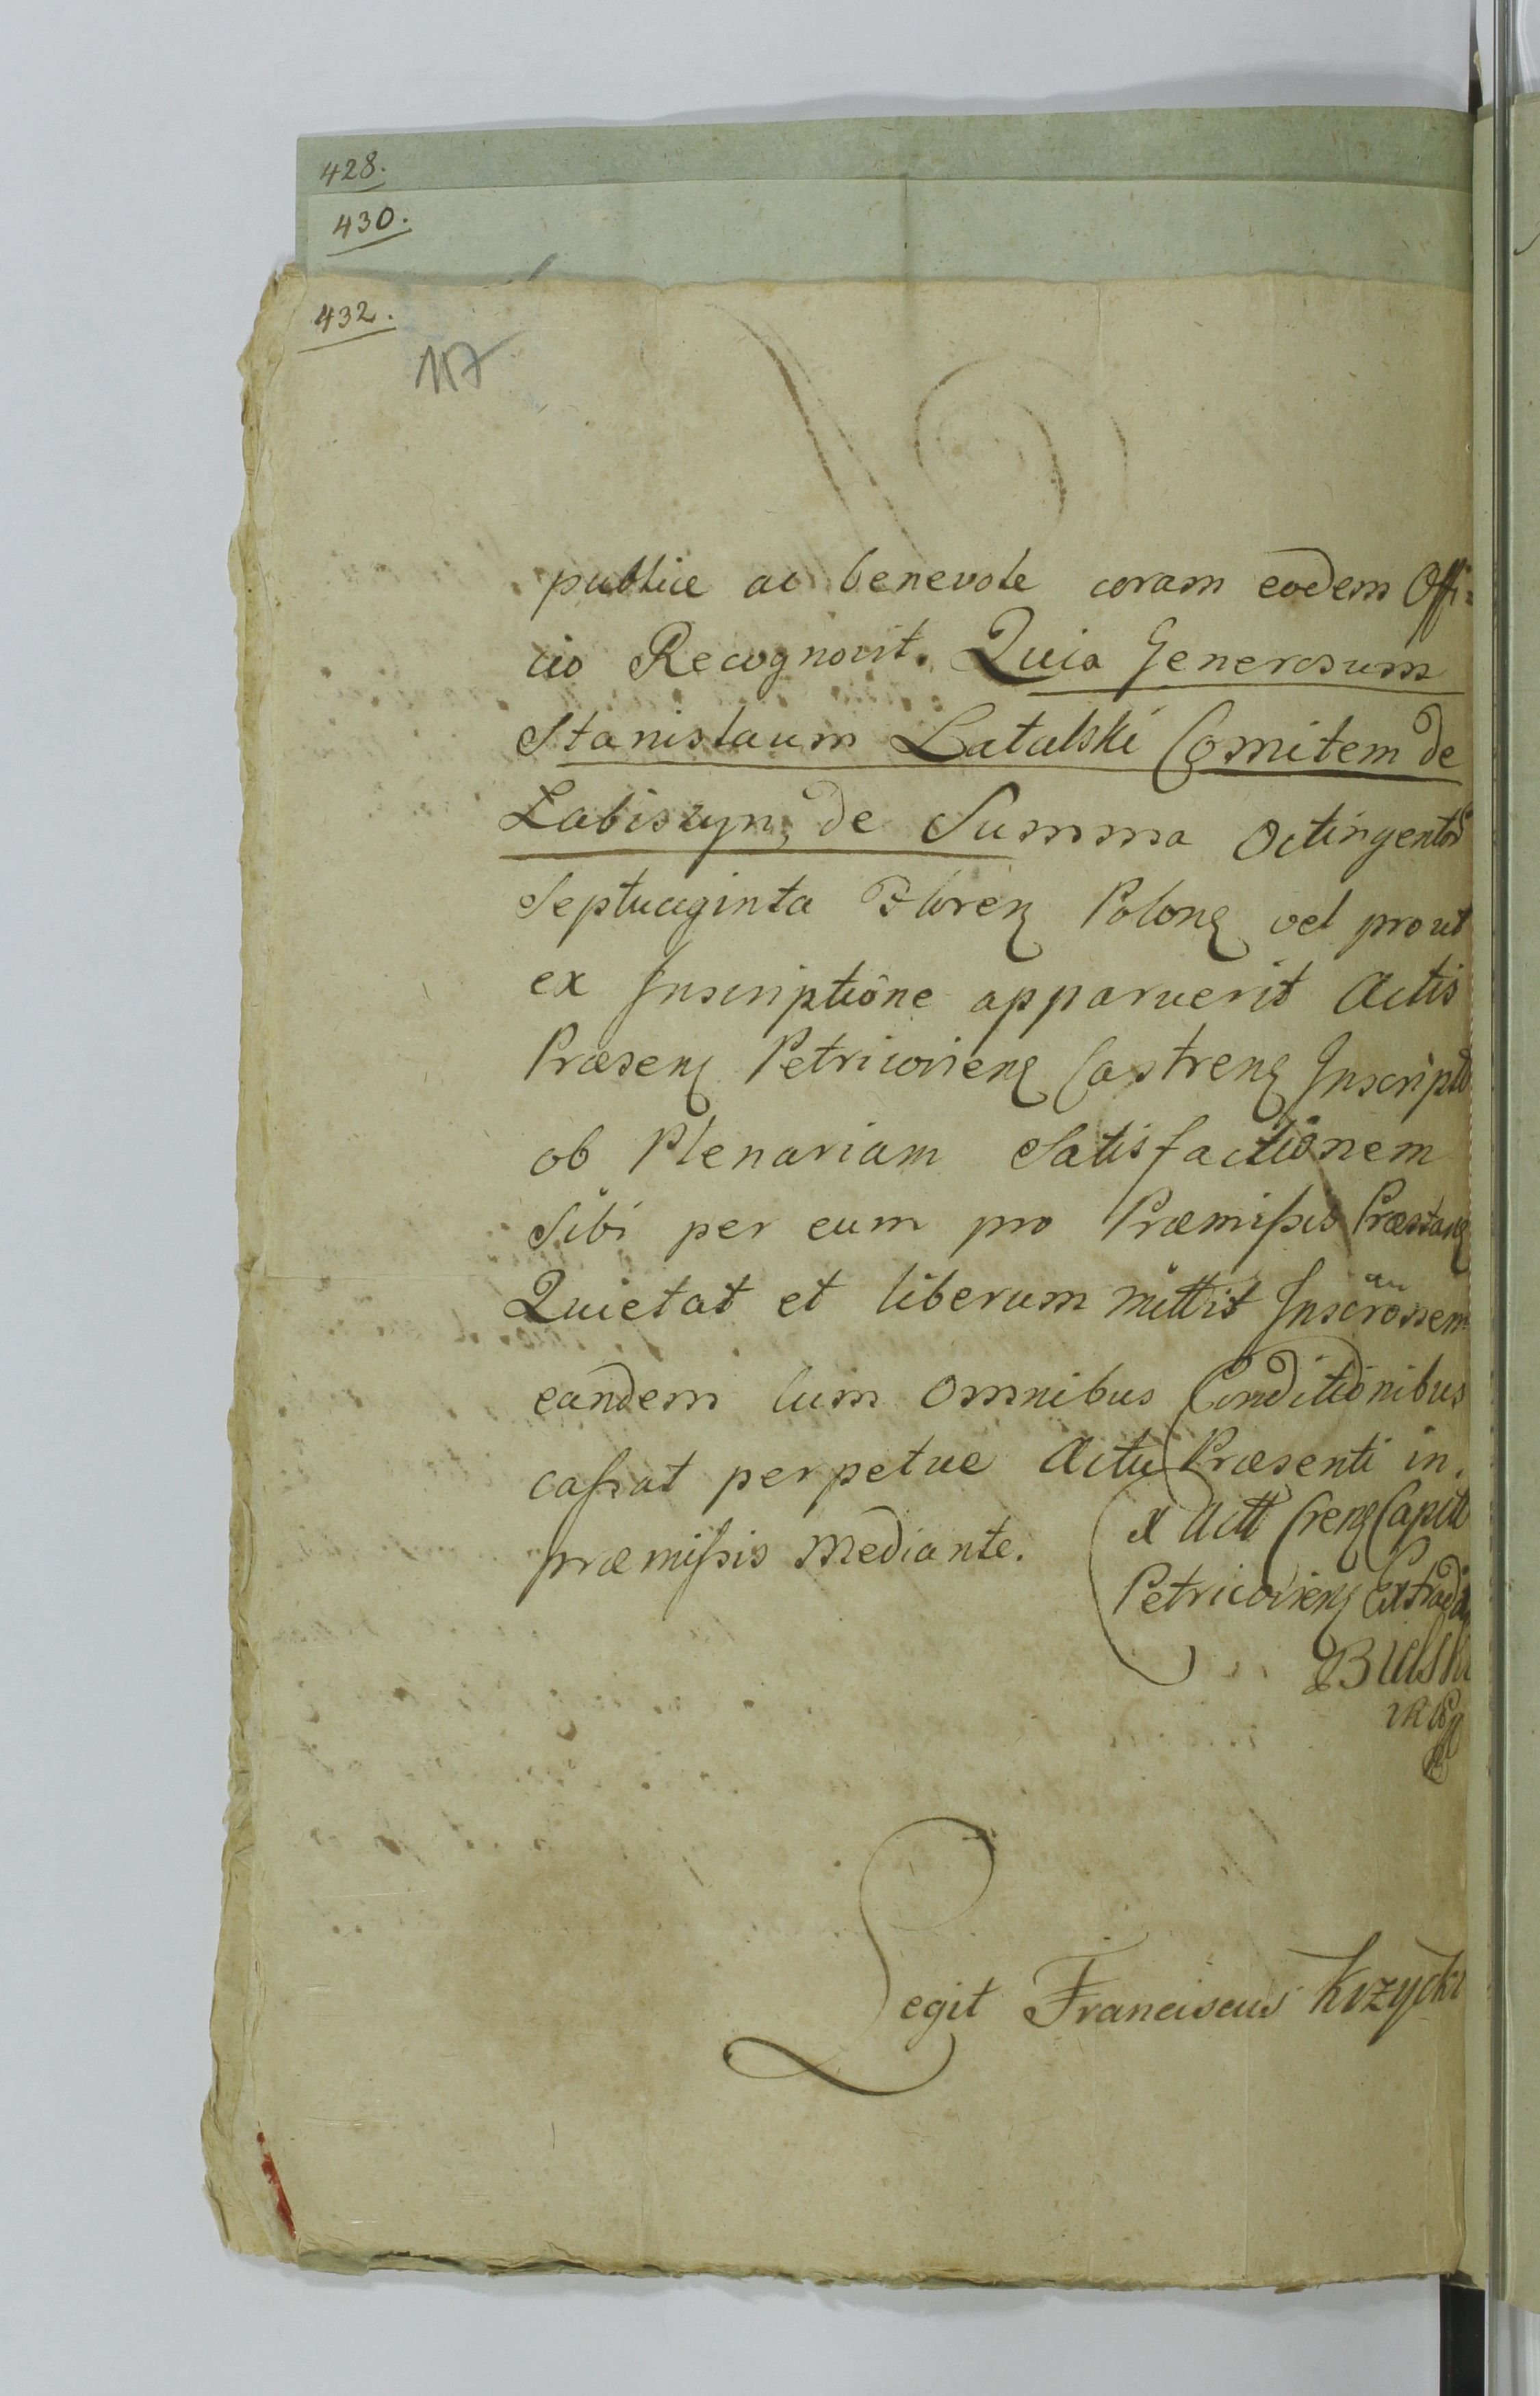 428.
430.
432.
117
publice ac benevole coram eodem Offi=
cio Recognovit. Quia Generosum
Stanislaum Latalski Comitem de
Labiszyn, de Summa Octingentor
Septuaginta Floren Polon vel prout
ex Inscriptiône apparuerit Actis
Præsen Petricovien Castren Inscripto
ob Plenariam Satisfactionem
Sibi per eum pro Præmissis Præstan
Quietat et liberum mittit Inscronem
eandem cum omnibus Conditionibus
cassat perpetue Actu Præsenti in
præmissis mediante.
x Actt Cren Capitt
Petricovien Extradit
Bielski
Legit Franciscus Krzycki